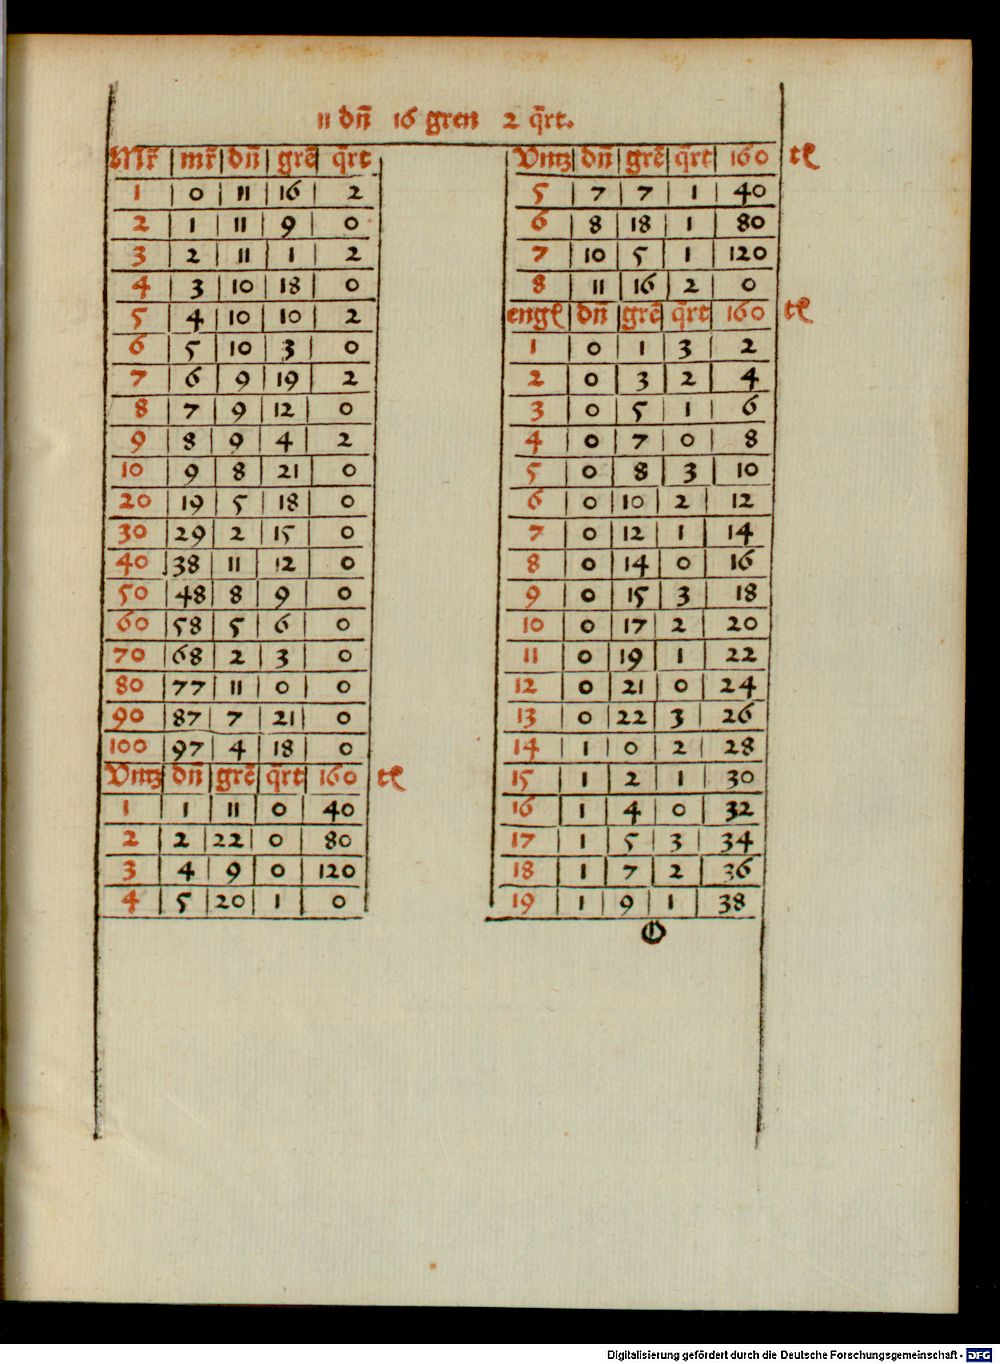 11 dn̄ 16 gren 2 q̄rt.
Mr̄ mr̄ dn̄ grē q̄rt
1 0 11 16 2
2 1 11 9 0
3 2 11 1 2
4 3 10 18 0
5 4 10 10 2
6 5 10 3 0
7 6 9 19 2
8 7 9 12 0
9 8 9 4 2
10 9 8 21 0
20 19 5 18 0
30 29 2 15 0
40 38 11 12 0
50 48 8 9 0
60 58 5 6 0
70 68 2 3 0
80 77 11 0 0
90 87 7 21 0
100 97 4 18 0
Vntz dn̄ grē q̄rt 160 tl
1 1 11 0 40
2 2 22 0 80
3 4 9 0 120
4 5 20 1 0
Vntz dn̄ grē q̄rt 160 tl
5 7 7 1 40
6 8 18 1 80
7 10 5 1 120
8 11 16 2 0
engl dn̄ grē q̄rt 160 tl
1 0 1 3 2
2 0 3 2 4
3 0 5 1 6
4 0 7 0 8
5 0 8 3 10
6 0 10 2 12
7 0 12 1 14
8 0 14 0 16
9 0 15 3 18
10 0 17 2 20
11 0 19 1 22
12 0 21 0 24
13 0 22 3 26
14 1 0 2 28
15 1 2 1 30
16 1 4 0 32
17 1 5 3 34
18 1 7 2 36
19 1 9 1 38
Digitalisierung gefördert durch die Deutsche Forschungsgemeinschaft - DFG